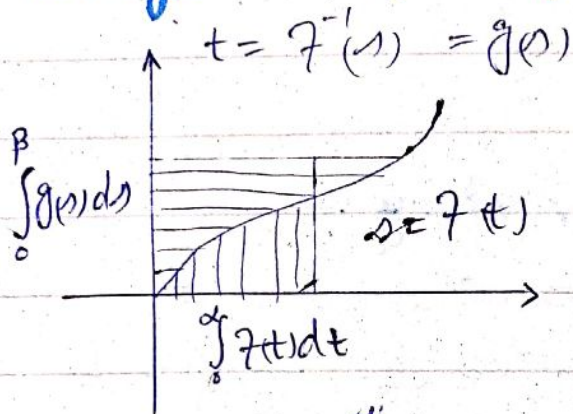 t = f⁻¹(s) = g(s)
∫₀^β g(s) ds
s = f(t)
∫₀^α f(t) dt